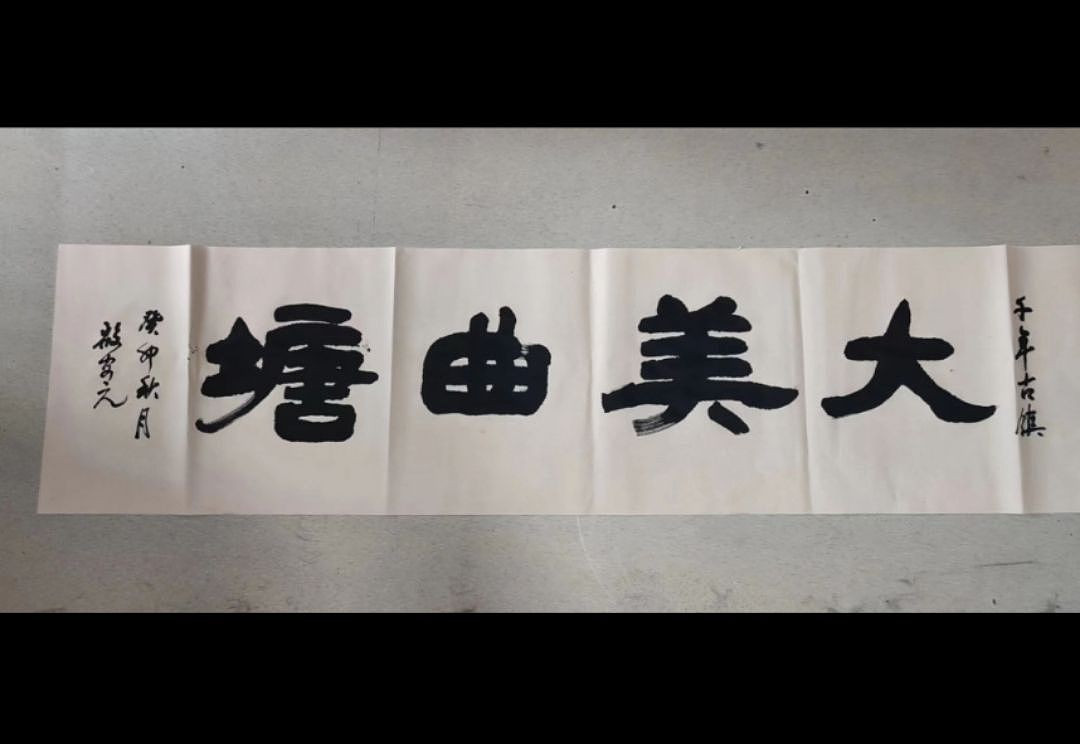 千年古镇
大美曲塘
癸卯秋月